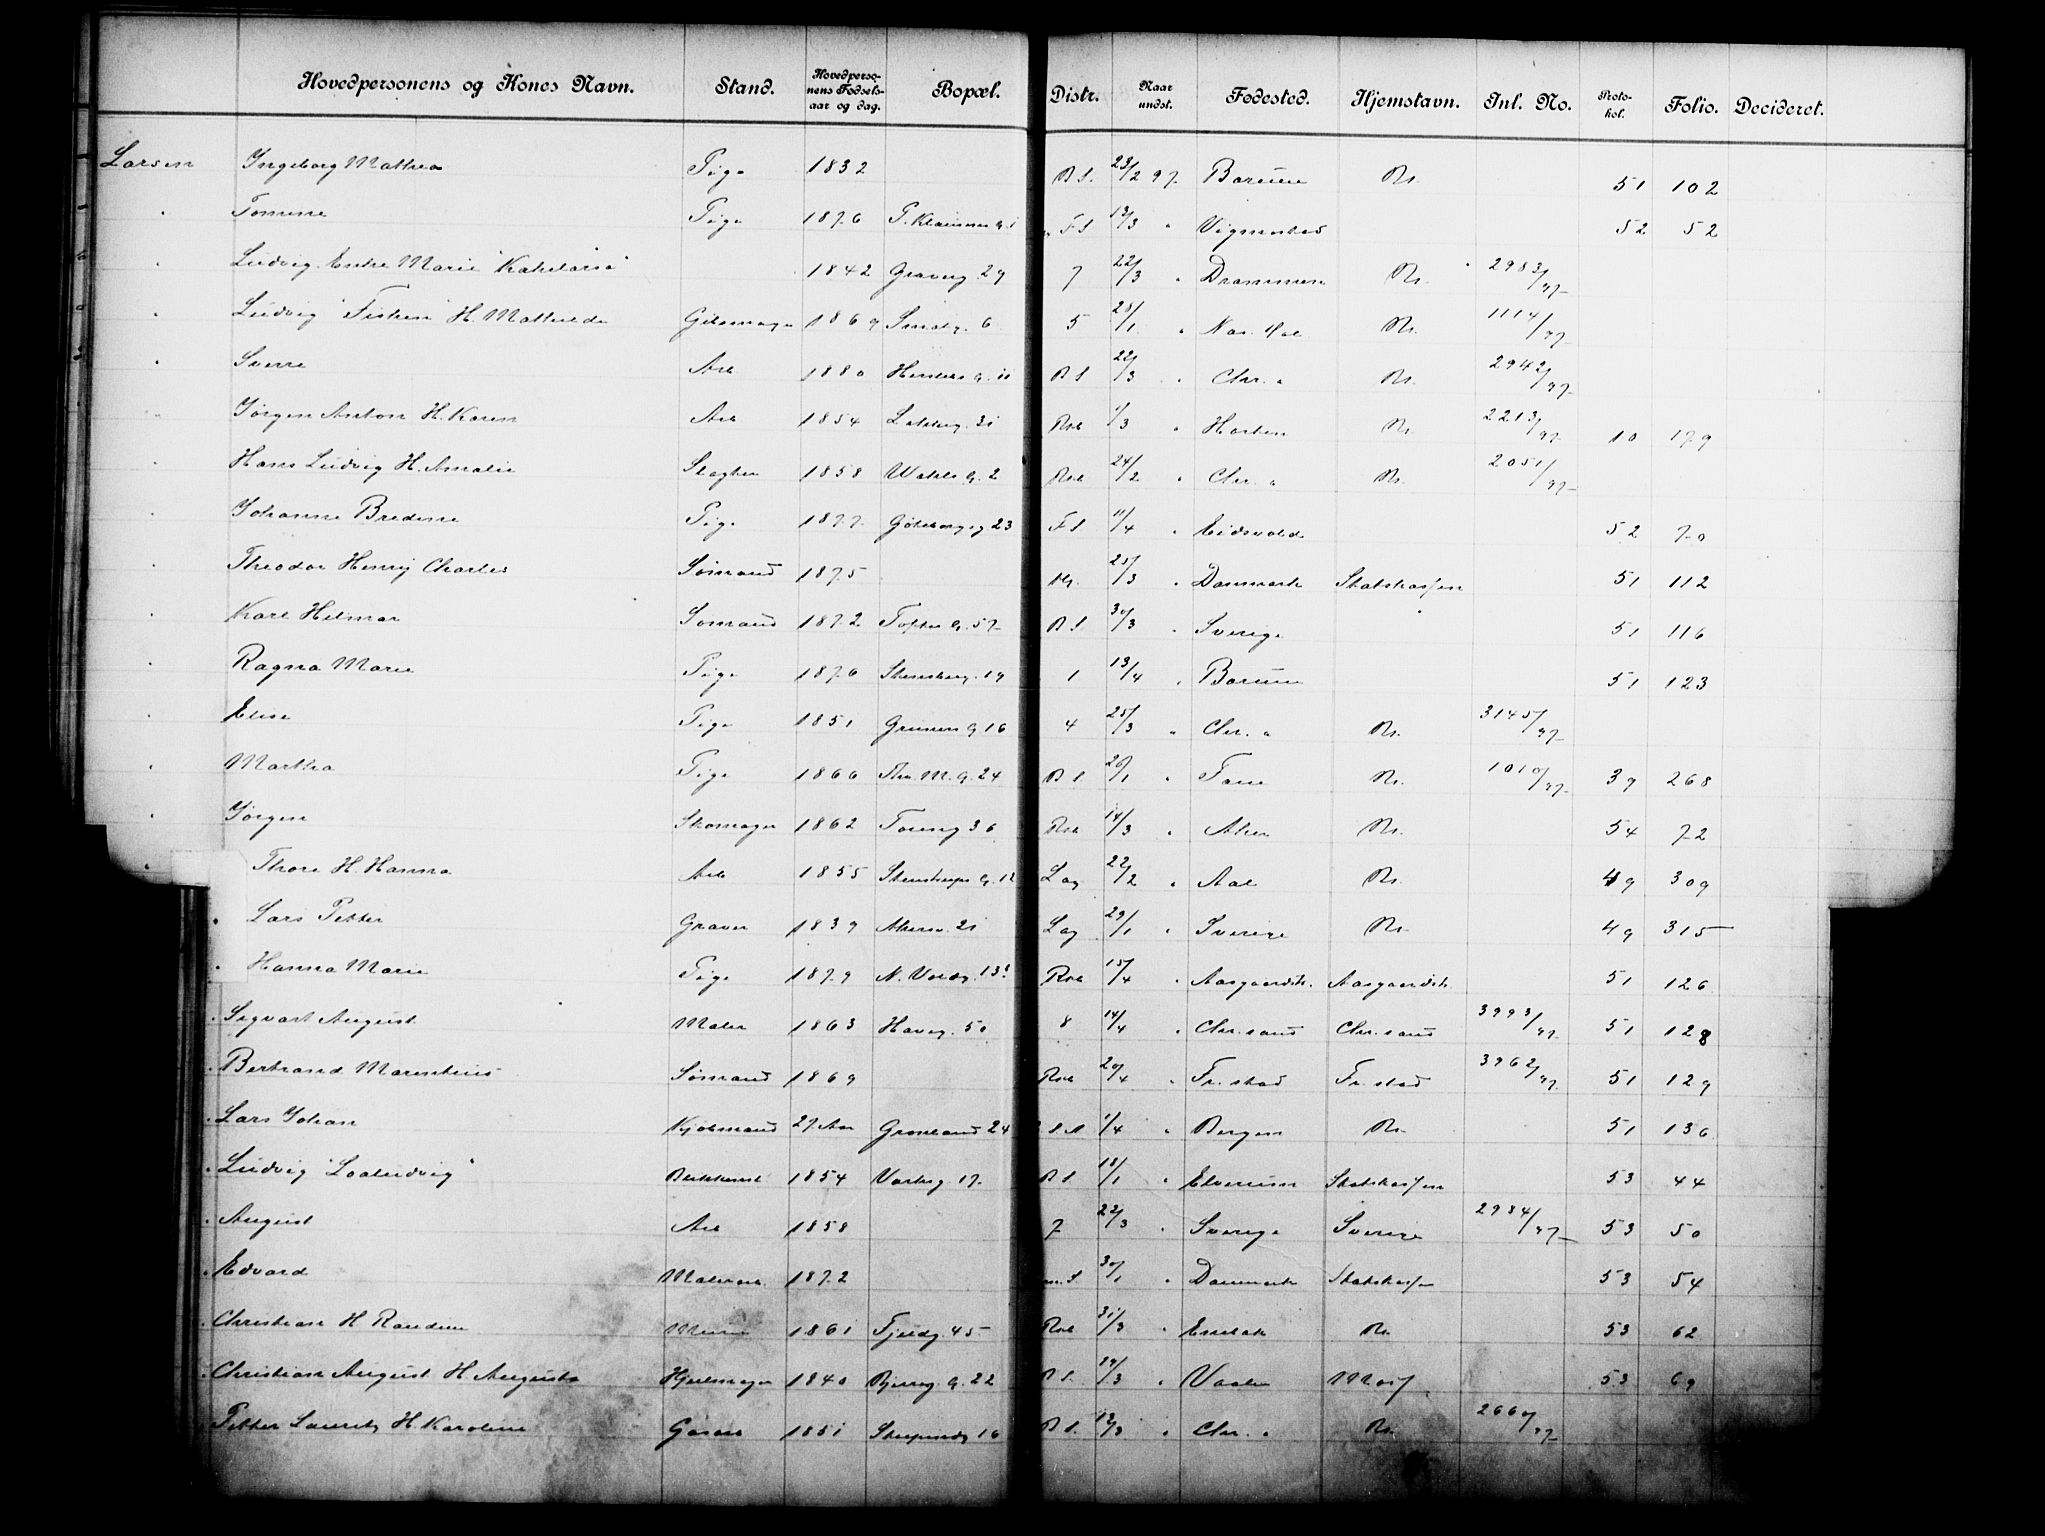 Hovedpersonens og Kones Navn. Stand. Hovedpersonens Fødselsaar og dag. Bopæl. Distr. Naar undst. Fødested. Hjemstavn. Inl. No. Protokol. Folio. Decideret.
Larsen Ingeborg Mathea Pige 1832 B S. 23/2 97 Bærum Kr. 51 102
" Tomine Pige 1876 F S 12/3 " Vigmostad 52 52
" Ludvig Enke Marie "Kakelarsa" 1842 Graverg. 29 7 22/3 " Drammen Kr. 2983/97
" Ludvig "Fisken" H. Mathilde Gibsmager 1869 Smalg. 6 5 28/1 " Kr. 1114/97
" Sverre Arb 1880 11 B S 22/3 " Chr. a Kr. 2942/97
" Jørgen Anton H. Karen Arb 1854 31 Rod 1/3 " Horten Kr. 2213/97 10 179
" Hans Ludvig H. Amalie Slagter 1858 Wahls G. 2 Rod 24/2 " Chr. a Kr. 2051/97
" Johanne Bredine Pige 1877 Göteborg g 23 F S 11/4 " Eidsvold 52 70
" Theodor Henry Charles Sömand 1875 25/3 " Danmark Statskassen 51 112
" Karl Hilmar Sömand 1872 Toftes G. 57 B S 30/3 " Sverige 51 116
" Ragna Marie Pige 1876 Stensberg. 19 1 13/4 " Bærum 51 123
" Elise Pige 1851 Grüners G 16 4 25/3 " Chr. a Kr. 3145/97
" Martha Pige 1866 Thv. M. G. 24 B S. 26/1 " Kr. 1010/97 39 268
" Jörgen Skomager 1862 Toieng 36 Rod 14/3 " Aker Kr. 54 72
" Thore H. Hanna Arb 1855 Stenstrups G. 12 Lag 22/2 " Aal Kr. 49 309
" Lars Petter Graver 1839 Akersv. 21 Lag 29/1 " Sverige Kr. 49 315
" Hanna Marie Pige 1879 Rod 15/4 " Aasgaardstr. Aasgaardstr. 51 126
" Sigvart August Maler 1863 Haveg. 50 8 14/4 " Chr.sand Chr.sand 3993/97 51 128
" Bertrand Marentius Sömand 1869 Rod 20/4 " Fr.stad Fr.stad 3962/97 51 129
" Lars Johan Kjölmand 27 Aar Grönland 24 1/4 " Bergen Kr. 51 136
" Ludvig "Loaludvig" 1854 17 B S 18/1 " Elverum Statskassen 53 44
" August Arb 1858 7 22/3 " Sverige Sverige 2984/97 53 50
" Edvard 1872 30/1 " Danmark Statskassen 53 54
" Christian H Randine Murer 1861 Fjeldg 45 Rod 31/3 " Enebak Kr. 53 62
" Christian August H. Augusta Hjulmager 1840 22 B S. 29/3 " Vaaler Moss 53 69
" Petter Lauritz H. Karoline 1851 16 B S. 12/3 " Chr. a Kr. 2660/97